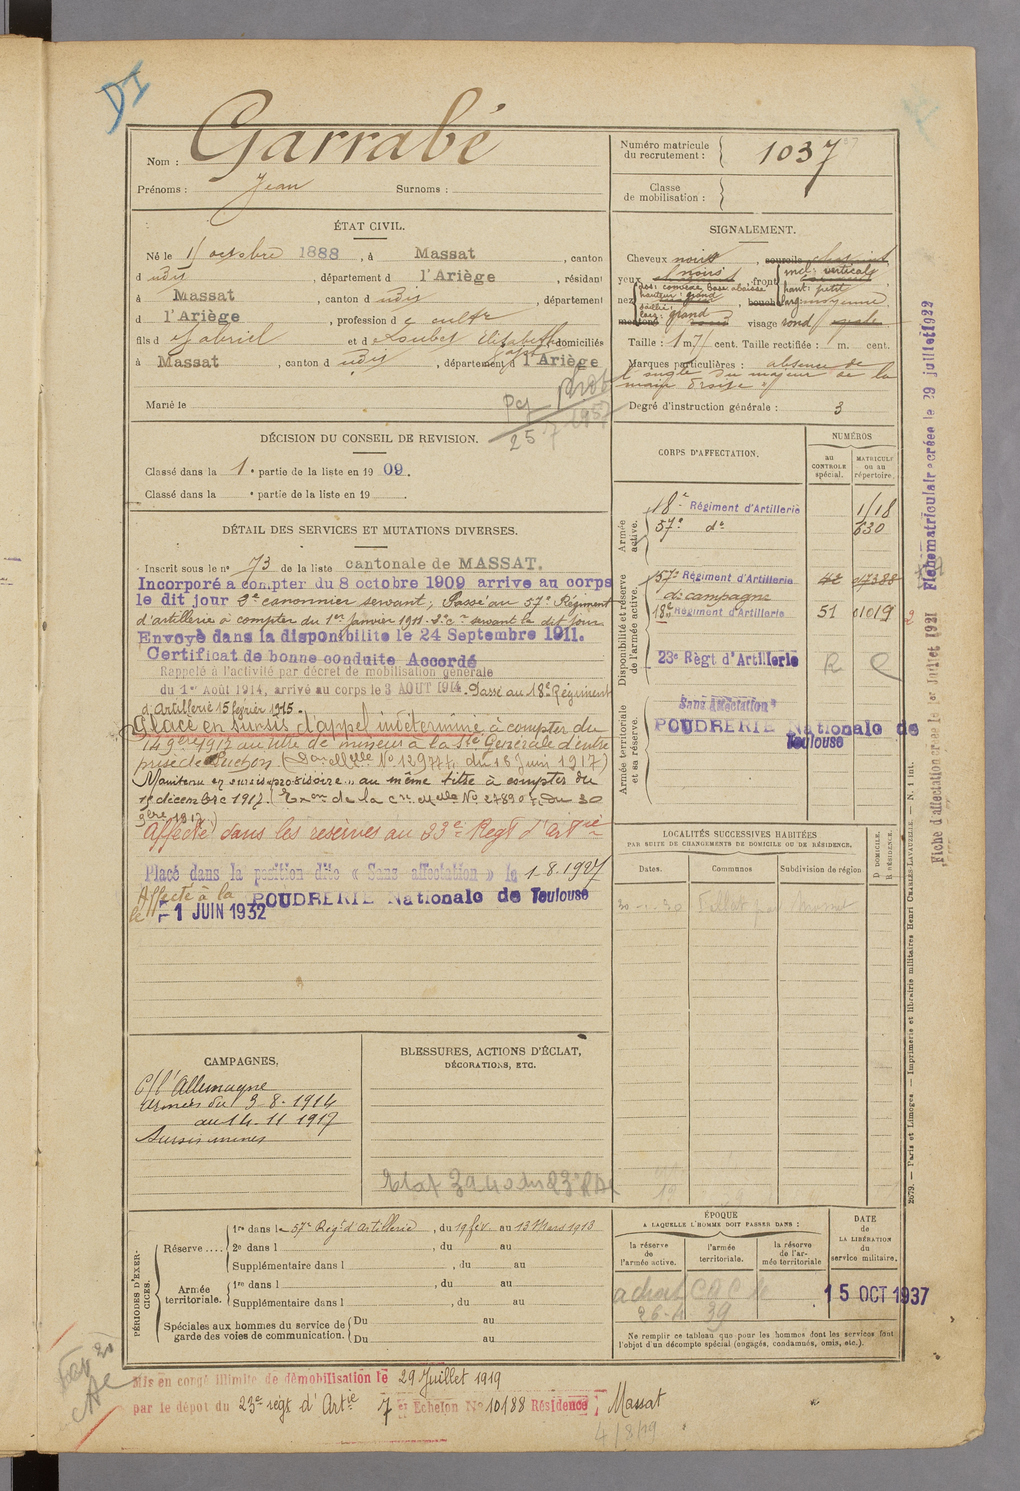 Garrabé
Nom :
Prénoms : Jean Surnoms :
Numéro matricule du recrutement : 1037
Classe de mobilisation :
ÉTAT CIVIL.
Né le 1 octobre 1888, à Massat, canton
d udit, département d l'Ariège, résidant
à Massat, canton d udit, département
d l'Ariège, profession d e cultr
fils d e Gabriel et d e Loubet Elizabeth domiciliés
à Massat, canton d udit, département d l'Ariège
Marié le
25.7.1957
SIGNALEMENT.
Cheveux noirs, sourcils chatains
yeux noirs, front incl: verticale
haut: petit
larg: moyenne
nez dos: convexe, base abaissée
hauteur: grand
saillie:
larg: grand
visage rond
Taille : 1 m 71 cent. Taille rectifiée : m. cent.
Marques particulières : absence de
l'ongle du majeur de la
main droite
Degré d'instruction générale : 3
DÉCISION DU CONSEIL DE REVISION.
Classé dans la 1e partie de la liste en 1909.
Classé dans la e partie de la liste en 19
CORPS D'AFFECTATION.
NUMÉROS
au CONTROLE spécial.
MATRICULE ou au répertoire.
Armée active.
18e Régiment d'Artillerie 1/18
57e do 630
Disponibilité et réserve de l'armée active.
57e Régiment d'Artillerie 42 07388
de campagne
18e Régiment d'Artillerie 51 01019
23e Régt d'Artillerie
Armée territoriale et sa réserve.
Sans affectation
POUDRERIE Nationale de
Toulouse
DÉTAIL DES SERVICES ET MUTATIONS DIVERSES.
Inscrit sous le no 73 de la liste cantonale de MASSAT.
Incorporé a compter du 8 octobre 1909 arrive au corps
le dit jour 2e canonnier servant; Passé au 57e Régiment
d'artillerie à compter du 1er janvier 1911. 2e cr servant le dit jour
Envoyé dans la disponibilite le 24 Septembre 1911.
Certificat de bonne conduite Accordé
Rappelé à l'activité par décret de mobilisation générale
du 1er Août 1914, arrivé au corps le 3 AOUT 1914. Passé au 18e Régiment
d'Artillerie 15 février 1915.
Placé en sursis d'appel indéterminé à compter du
14 9bre 1917 au titre de mineur à la Sté Générale d'entre
prise de Luchon (Dar elle No 12977/4 du 16 juin 1917)
Maintenu en sursis provisoire au même titre à compter du
15 décembre 1917. (Exon de la Cre Melle No 27890 du 30
9bre 1917)
Affecté dans les réserves au 23e Regt d'Artie
Placé dans la position dite « Sans affectation » le 1.8.1927
Affecté à la POUDRERIE Nationale de Toulouse
le 1 JUIN 1932
LOCALITÉS SUCCESSIVES HABITÉES
PAR SUITE DE CHANGEMENTS DE DOMICILE OU DE RÉSIDENCE.
Dates. Communes Subdivision de région
D DOMICILE.
R RÉSIDENCE.
CAMPAGNES.
C/ l'Allemagne
armées du 3-8-1914
au 14-11 1917
Sursis mines
BLESSURES, ACTIONS D'ÉCLAT,
DÉCORATIONS, ETC.
PÉRIODES D'EXERCICES.
Réserve .... 1re dans le 57e Régt d'artillerie, du 19 fév. au 13 Mars 1913
2e dans l , du au
Supplémentaire dans l , du au
Armée territoriale. 1re dans l , du au
Supplémentaire dans l , du au
Spéciales aux hommes du service de garde des voies de communication. Du au
Du au
ÉPOQUE
A LAQUELLE L'HOMME DOIT PASSER DANS :
la réserve de l'armée active.
l'armée territoriale.
la réserve de l'armée territoriale
DATE de LA LIBÉRATION du service militaire.
26-4 39
15 OCT 1937
Ne remplir ce tableau que pour les hommes dont les services font
l'objet d'un décompte spécial (engagés, condamnés, omis, etc.).
Mis en congé illimité de démobilisation le 29 Juillet 1919
par le dépot du 23e régt d'Artie 7 e Echelon No 10188 Résidence Massat
4/8/19
Fiche matriculaire créée le 29 juillet 1922
Fiche d'affectation créée le 1er Juillet 1921
2079. — Paris et Limoges. — Imprimerie et librairie militaires Henri CHARLES-LAVAUZELLE. — N. 1 int.